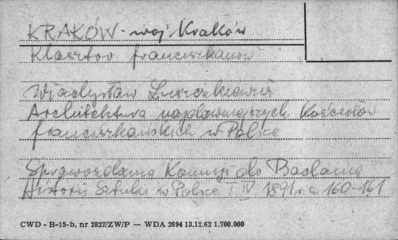 KRAKÓW - woj. Kraków
Klasztor franciszkanów
Władysław Łuszczkiewicz
Architektura najdawniejszych Kościołów
franciszkańskich w Polsce
Sprawozdania Komisji do Badania
Historii Sztuki w Polsce T. IV 1891 r. s. 160-161
CWD - B-15-b, nr 2827/ZW/P — WDA 2694 13.12.62 1.700.000